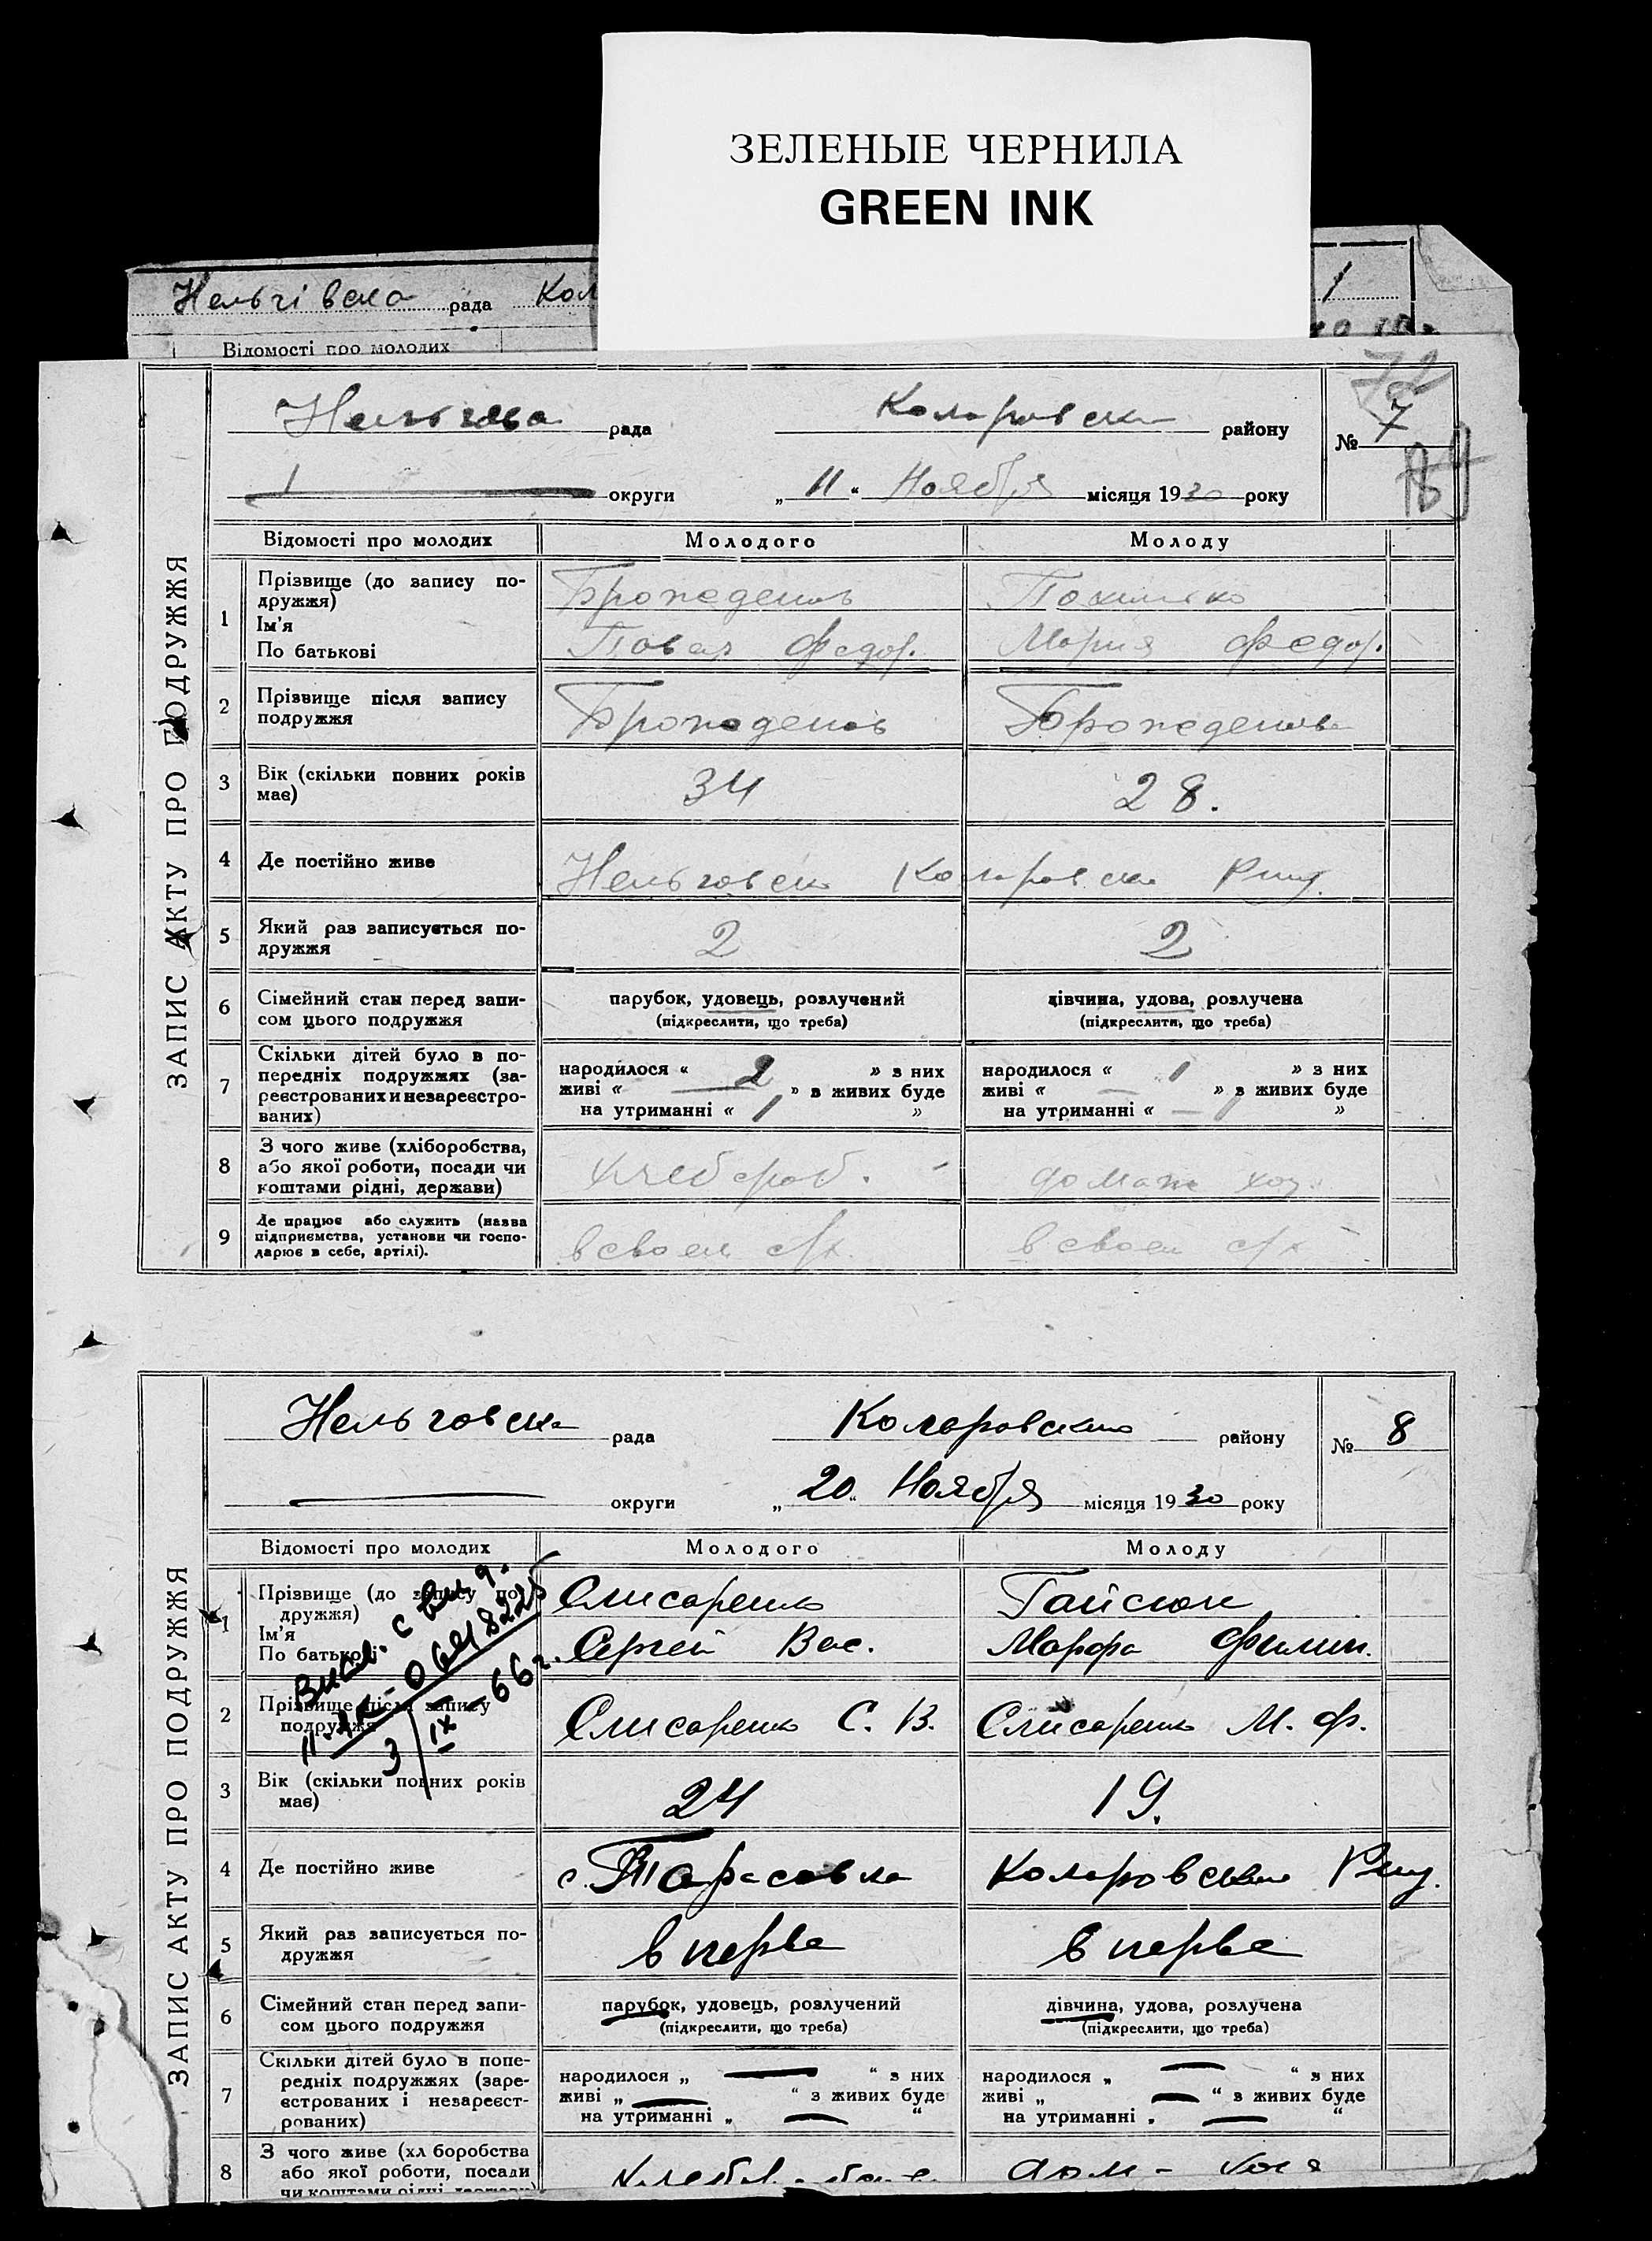 ЗЕЛЕНЫЕ ЧЕРНИЛА
GREEN INK
Нельгівска рада Кол 1
Відомості про молодих
ЗАПИС АКТУ ПРО ПОДРУЖЖЯ
рада Коларовски району № 7
округи „ 11 “ Ноября місяця 1930 року
Відомості про молодих Молодого Молоду
1 Прізвище (до запису по-
дружжя)
Ім'я
По батькові
Федор. Мария Федор.
2 Прізвище після запису
подружжя
3 Вік (скільки повних років
має) 34 28.
4 Де постійно живе Нельговска Коларовска
5 Який раз записується по-
дружжя 2 2
6 Сімейний стан перед запи-
сом цього подружжя
парубок, удовець, розлучений дівчина, удова, розлучена
(підкреслити, що треба) (підкреслити, що треба)
7 Скільки дітей було в по-
передніх подружжях (за-
реєстрованих и незареєстро-
ваних)
народилося « 2 » з них народилося « 1 » з них
живі « — » в живих буде живі « — » з живих буде
на утриманні « 1 » на утриманні « — »
8 З чого живе (хліборобства,
або якої роботи, посади чи
коштами рідні, держави)
хлебороб. домаш хоз.
9 Де працює або служить (назва
підприємства, установи чи госпо-
дарює в себе, артілі).
в своем с/х. в своем с/х
ЗАПИС АКТУ ПРО ПОДРУЖЖЯ
Нельговска рада Коларовского району № 8
округи „ 20 “ Ноября місяця 1930 року
Відомості про молодих Молодого Молоду
1 Прізвище (до запису по-
дружжя)
Ім'я
По батькові
Слисаренко Гайсюк
Сергей Вас. Марфа Филип.
2 Прізвище після запису
подружжя
Слисаренко С. В. Слисаренко М. Ф.
3/IX-66 г.
3 Вік (скільки повних років
має) 24 19.
4 Де постійно живе с. Тарасовка Коларовская
5 Який раз записується по-
дружжя вперве вперве
6 Сімейний стан перед запи-
сом цього подружжя
парубок, удовець, розлучений дівчина, удова, розлучена
(підкреслити, що треба) (підкреслити, що треба)
7 Скільки дітей було в попе-
редніх подружжях (заре-
єстрованих і незареєст-
рованих)
народилося „ — “ з них народилося „ — “ з них
живі „ — “ з живих буде живі „ — “ з живих буде
на утриманні „ — “ на утриманні „ — “
8 З чого живе (хл боробства
або якої роботи, посади
чи коштами рідні